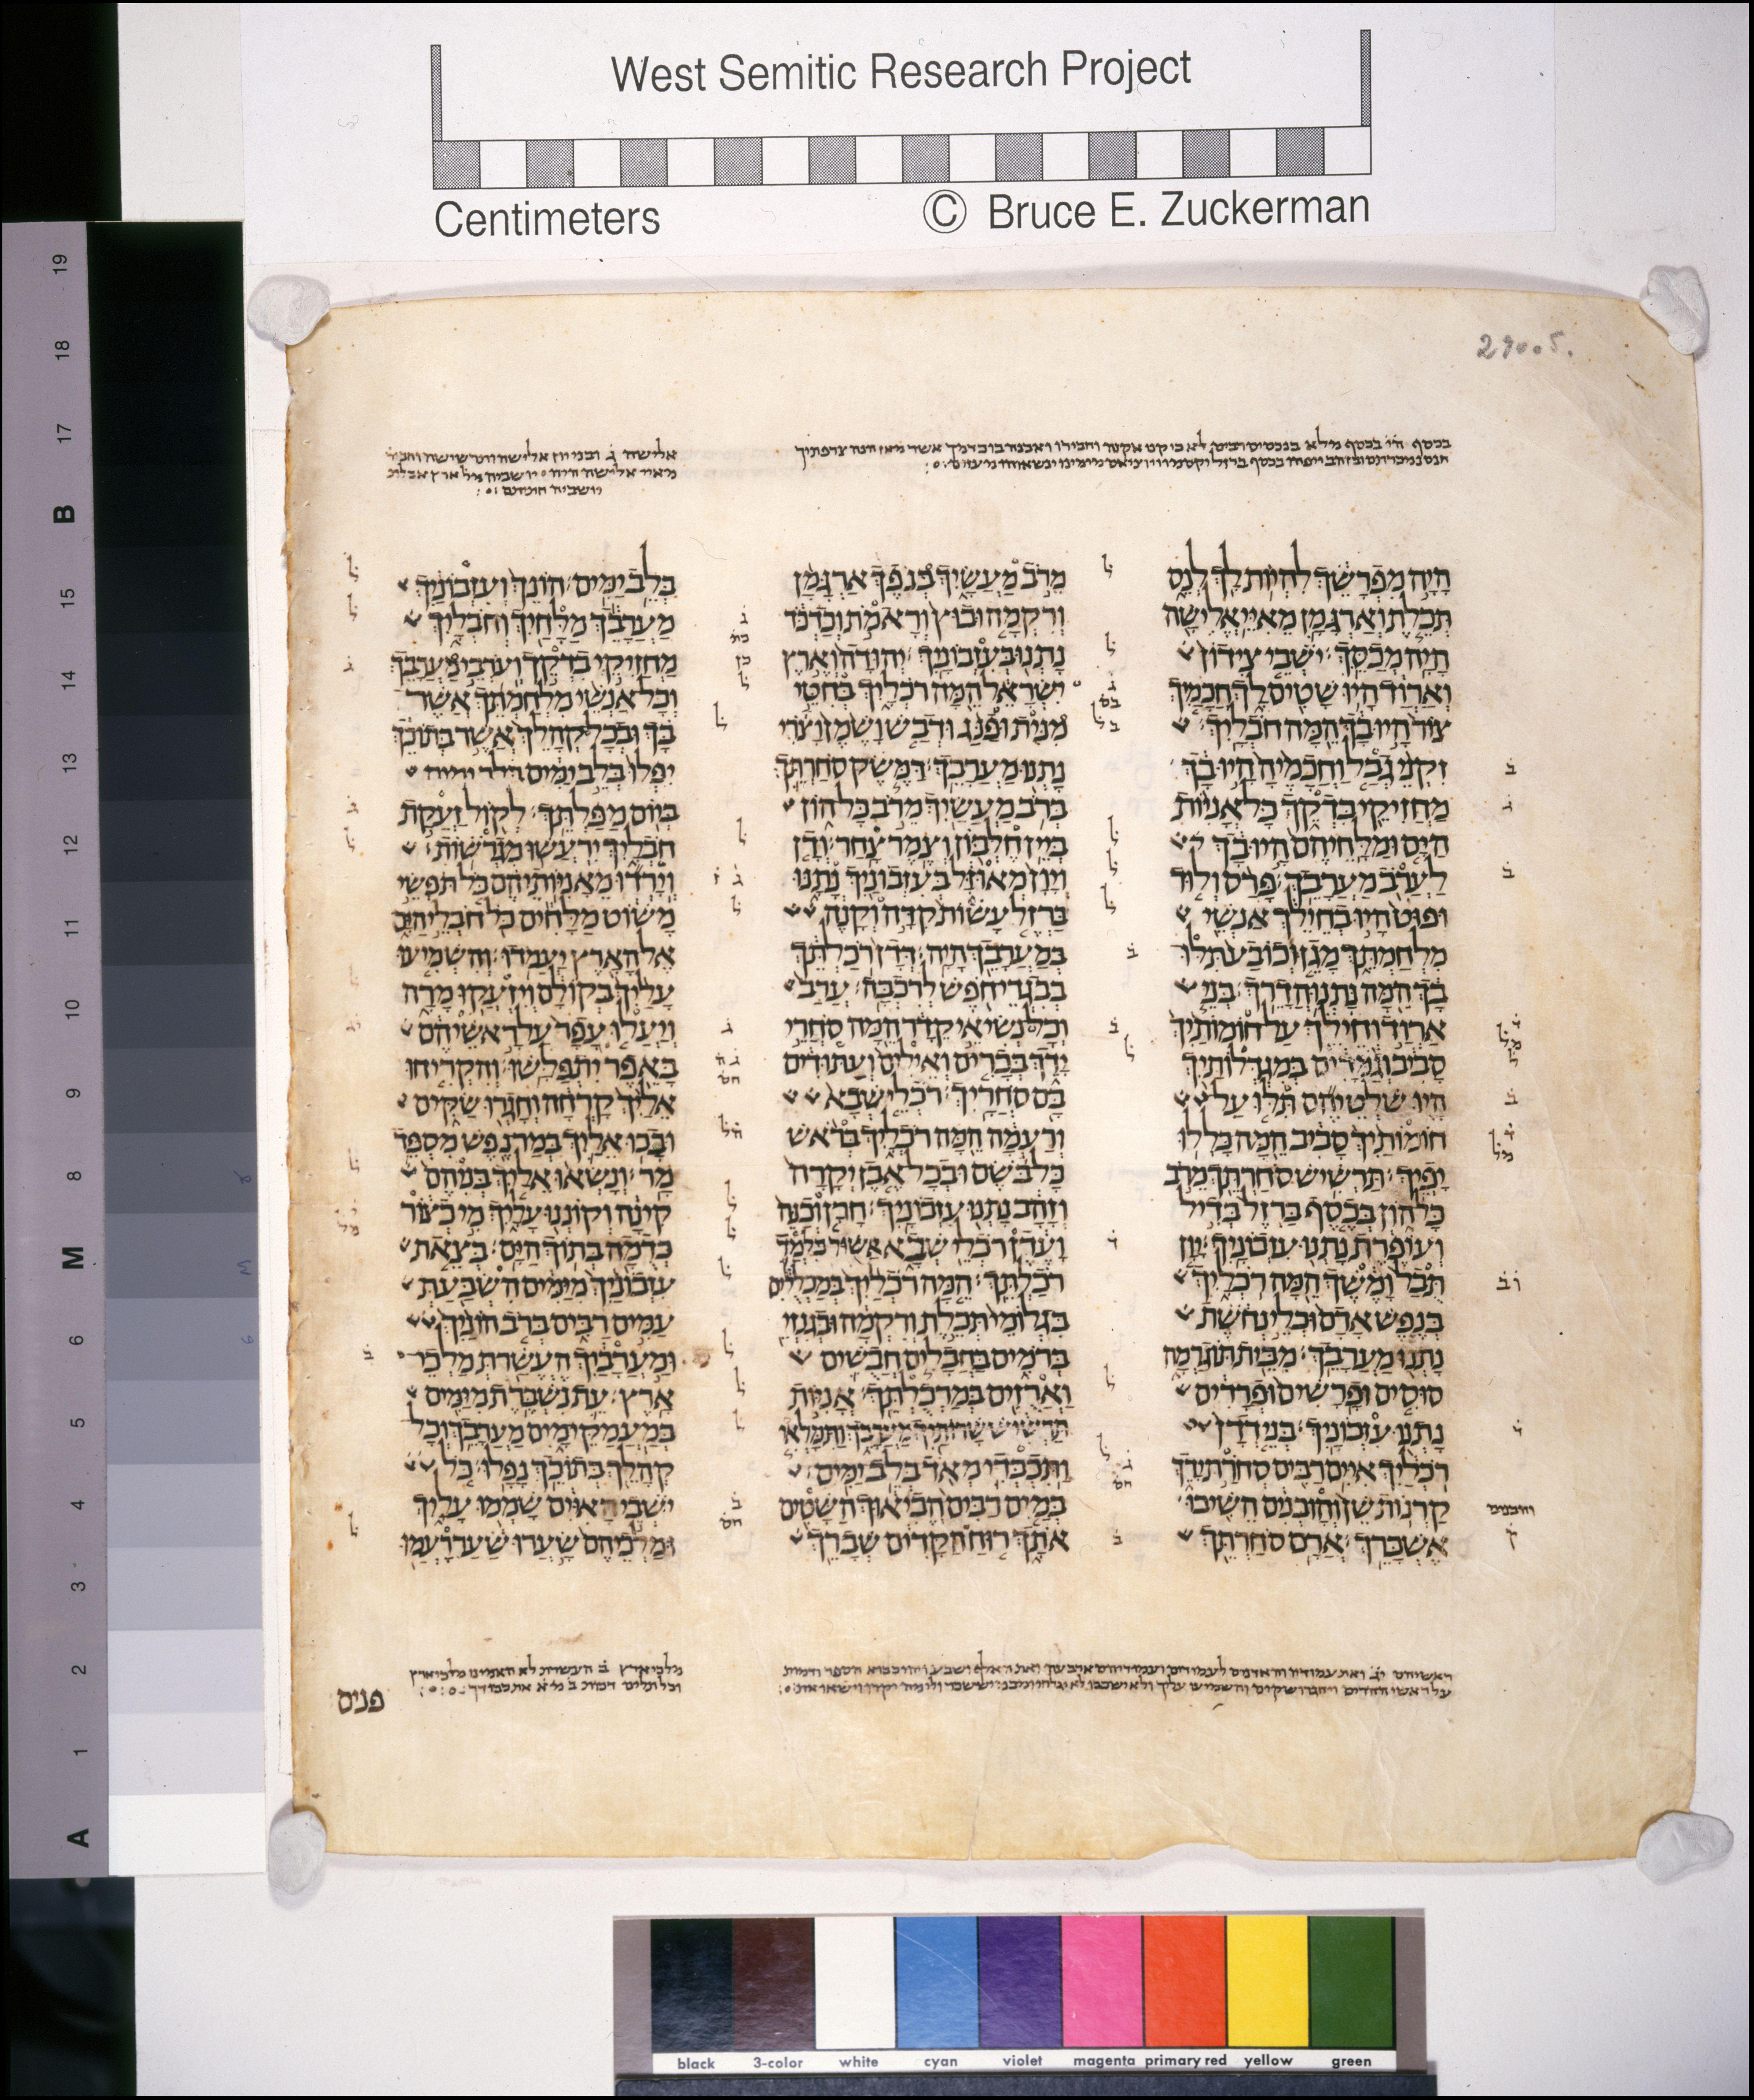 West Semitic Research Project
Centimeters © Bruce E. Zuckerman
הָיָה מִפְרָשֵׂךְ לִהְיוֹת לָךְ לְנֵס
תְּכֵלֶת וְאַרְגָּמָן מֵאִיֵּי אֱלִישָׁה
הָיָה מְכַסֵּךְ׃ יֹשְׁבֵי צִידוֹן
וְאַרְוַד הָיוּ שָׁטִים לָךְ חֲכָמַיִךְ
צוֹר הָיוּ בָךְ הֵמָּה חֹבְלָיִךְ׃
זִקְנֵי גְבַל וַחֲכָמֶיהָ הָיוּ בָךְ
מַחֲזִיקֵי בִּדְקֵךְ כָּל אֳנִיּוֹת
הַיָּם וּמַלָּחֵיהֶם הָיוּ בָךְ
לַעֲרֹב מַעֲרָבֵךְ׃ פָּרַס וְלוּד
וּפוּט הָיוּ בְחֵילֵךְ אַנְשֵׁי
מִלְחַמְתֵּךְ מָגֵן וְכוֹבַע תִּלּוּ
בָךְ הֵמָּה נָתְנוּ הֲדָרֵךְ׃ בְּנֵי
אַרְוַד וְחֵילֵךְ עַל חוֹמוֹתַיִךְ
סָבִיב וְגַמָּדִים בְּמִגְדְּלוֹתַיִךְ
הָיוּ שִׁלְטֵיהֶם תִּלּוּ עַל
חוֹמוֹתַיִךְ סָבִיב הֵמָּה כָּלְלוּ
יָפְיֵךְ׃ תַּרְשִׁישׁ סֹחַרְתֵּךְ מֵרֹב
כָּל הוֹן בְּכֶסֶף בַּרְזֶל בְּדִיל
וְעוֹפֶרֶת נָתְנוּ עִזְבוֹנָיִךְ׃ יָוָן
תֻּבַל וָמֶשֶׁךְ הֵמָּה רֹכְלָיִךְ
בְּנֶפֶשׁ אָדָם וּכְלֵי נְחֹשֶׁת
נָתְנוּ מַעֲרָבֵךְ׃ מִבֵּית תּוֹגַרְמָה
סוּסִים וּפָרָשִׁים וּפְרָדִים
נָתְנוּ עִזְבוֹנָיִךְ׃ בְּנֵי דְדָן
רֹכְלַיִךְ אִיִּים רַבִּים סְחֹרַת יָדֵךְ
קַרְנוֹת שֵׁן וְהָוֹבְנִים הֵשִׁיבוּ
אֶשְׁכָּרֵךְ׃ אֲרָם סֹחַרְתֵּךְ
מֵרֹב מַעֲשָׂיִךְ בְּנֹפֶךְ אַרְגָּמָן
וְרִקְמָה וּבוּץ וְרָאמֹת וְכַדְכֹּד
נָתְנוּ בְּעִזְבוֹנָיִךְ׃ יְהוּדָה וְאֶרֶץ
יִשְׂרָאֵל הֵמָּה רֹכְלָיִךְ בְּחִטֵּי
מִנִּית וּפַנַּג וּדְבַשׁ וָשֶׁמֶן וָצֹרִי
נָתְנוּ מַעֲרָבֵךְ׃ דַּמֶּשֶׂק סֹחַרְתֵּךְ
בְּרֹב מַעֲשַׂיִךְ מֵרֹב כָּל הוֹן
בְּיֵין חֶלְבּוֹן וְצֶמֶר צָחַר׃ וְדָן
וְיָוָן מְאוּזָּל בְּעִזְבוֹנַיִךְ נָתָנּוּ
בַּרְזֶל עָשׁוֹת קִדָּה וְקָנֶה
בְּמַעֲרָבֵךְ הָיָה׃ דְּדָן רֹכַלְתֵּךְ
בְבִגְדֵי חֹפֶשׁ לְרִכְבָּה׃ עֲרַב
וְכָל נְשִׂיאֵי קֵדָר הֵמָּה סֹחֲרֵי
יָדֵךְ בְּכָרִים וְאֵילִים וְעַתּוּדִים
בָּם סֹחֲרָיִךְ׃ רֹכְלֵי שְׁבָא
וְרַעְמָה הֵמָּה רֹכְלָיִךְ בְּרֹאשׁ
כָּל בֹּשֶׂם וּבְכָל אֶבֶן יְקָרָה
וְזָהָב נָתְנוּ עִזְבוֹנָיִךְ׃ חָרָן וְכַנֵּה
וָעֶדֶן רֹכְלֵי שְׁבָא אַשּׁוּר כִּלְמַד
רֹכַלְתֵּךְ׃ הֵמָּה רֹכְלַיִךְ בְמַכְלֻלִים
בִּגְלוֹמֵי תְּכֵלֶת וְרִקְמָה וּבְגִנְזֵי
בְּרֹמִים בַּחֲבָלִים חֲבֻשִׁים
וַאֲרֻזִים בְּמַרְכֻלְתֵּךְ׃ אֳנִיּוֹת
תַּרְשִׁישׁ שָׁרוֹתַיִךְ מַעֲרָבֵךְ וַתִּמָּלְאִי
וַתִּכְבְּדִי מְאֹד בְּלֵב יַמִּים׃
בְּמַיִם רַבִּים הֱבִיאוּךְ הַשָּׁטִים
אֹתָךְ רוּחַ הַקָּדִים שְׁבָרֵךְ
בְּלֵב יַמִּים׃ הוֹנֵךְ וְעִזְבוֹנַיִךְ
מַעֲרָבֵךְ מַלָּחַיִךְ וְחֹבְלָיִךְ
מַחֲזִיקֵי בִדְקֵךְ וְעֹרְבֵי מַעֲרָבֵךְ
וְכָל אַנְשֵׁי מִלְחַמְתֵּךְ אֲשֶׁר
בָּךְ וּבְכָל קְהָלֵךְ אֲשֶׁר בְּתוֹכֵךְ
יִפְּלוּ בְּלֵב יַמִּים
בְּיוֹם מַפַּלְתֵּךְ׃ לְקוֹל זַעֲקַת
חֹבְלָיִךְ יִרְעֲשׁוּ מִגְרֹשׁוֹת׃
וְיָרְדוּ מֵאֳנִיּוֹתֵיהֶם כֹּל תֹּפְשֵׂי
מָשׁוֹט מַלָּחִים כֹּל חֹבְלֵי הַיָּם
אֶל הָאָרֶץ יַעֲמֹדוּ׃ וְהִשְׁמִיעוּ
עָלַיִךְ בְּקוֹלָם וְיִזְעֲקוּ מָרָה
וְיַעֲלוּ עָפָר עַל רָאשֵׁיהֶם
בָּאֵפֶר יִתְפַּלָּשׁוּ׃ וְהִקְרִיחוּ
אֵלַיִךְ קָרְחָה וְחָגְרוּ שַׂקִּים
וּבָכוּ אֵלַיִךְ בְּמַר נֶפֶשׁ מִסְפֵּד
מָר׃ וְנָשְׂאוּ אֵלַיִךְ בְּנִיהֶם
קִינָה וְקוֹנְנוּ עָלָיִךְ מִי כְצוֹר
כְּדֻמָה בְּתוֹךְ הַיָּם׃ בְּצֵאת
עִזְבוֹנַיִךְ מִיַּמִּים הִשְׂבַּעַתְּ
עַמִּים רַבִּים בְּרֹב הוֹנַיִךְ
וּמַעֲרָבַיִךְ הֶעֱשַׁרְתְּ מַלְכֵי
אָרֶץ׃ עֵת נִשְׁבֶּרֶת מִיַּמִּים
בְּמַעֲמַקֵּי מָיִם מַעֲרָבֵךְ וְכָל
קְהָלֵךְ בְּתוֹכֵךְ נָפָלוּ׃ כֹּל
יֹשְׁבֵי הָאִיִּים שָׁמְמוּ עָלָיִךְ
וּמַלְכֵיהֶם שָׂעֲרוּ שַׂעַר רָעֲמוּ
פנים
black 3-color white cyan violet magenta primary red yellow green